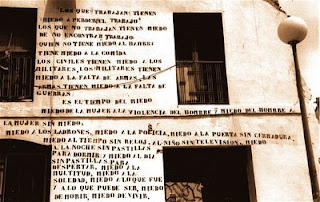 "LOS QUE TRABAJAN TIENEN
MIEDO A PERDER EL TRABAJO
LOS QUE NO TRABAJAN TIENEN MIEDO
DE NO ENCONTRAR TRABAJO
QUIEN NO TIENE MIEDO AL HAMBRE
TIENE MIEDO A LA COMIDA
LOS CIVILES TIENEN MIEDO A LOS
MILITARES, LOS MILITARES TIENEN
MIEDO A LA FALTA DE ARMAS, LAS
ARMAS TIENEN MIEDO A LA FALTA DE
GUERRAS
ES EL TIEMPO DEL MIEDO
MIEDO DE LA MUJER A LA VIOLENCIA DEL HOMBRE Y MIEDO DEL HOMBRE A
LA MUJER SIN MIEDO.
MIEDO A LOS LADRONES, MIEDO A LA POLICIA, MIEDO A LA PUERTA SIN CERRADURA,
MIEDO AL TIEMPO SIN RELOJ, AL NIÑO SIN TELEVISION, MIEDO
A LA NOCHE SIN PASTILLAS
PARA DORMIR Y MIEDO AL DIA
SIN PASTILLAS PARA
DESPERTAR, MIEDO A LA
MULTITUD, MIEDO A LA
SOLEDAD, MIEDO A LO QUE FUE
Y A LO QUE PUEDE SER, MIEDO
DE MORIR, MIEDO DE VIVIR,